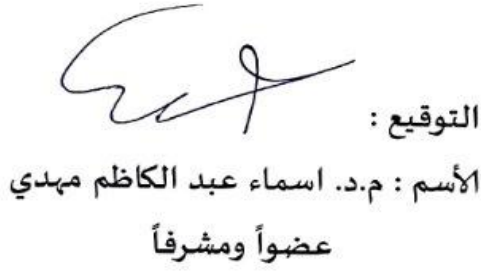 التوقيع :
الأسم : م.د. اسماء عبد الكاظم مهدي
عضواً ومشرفاً